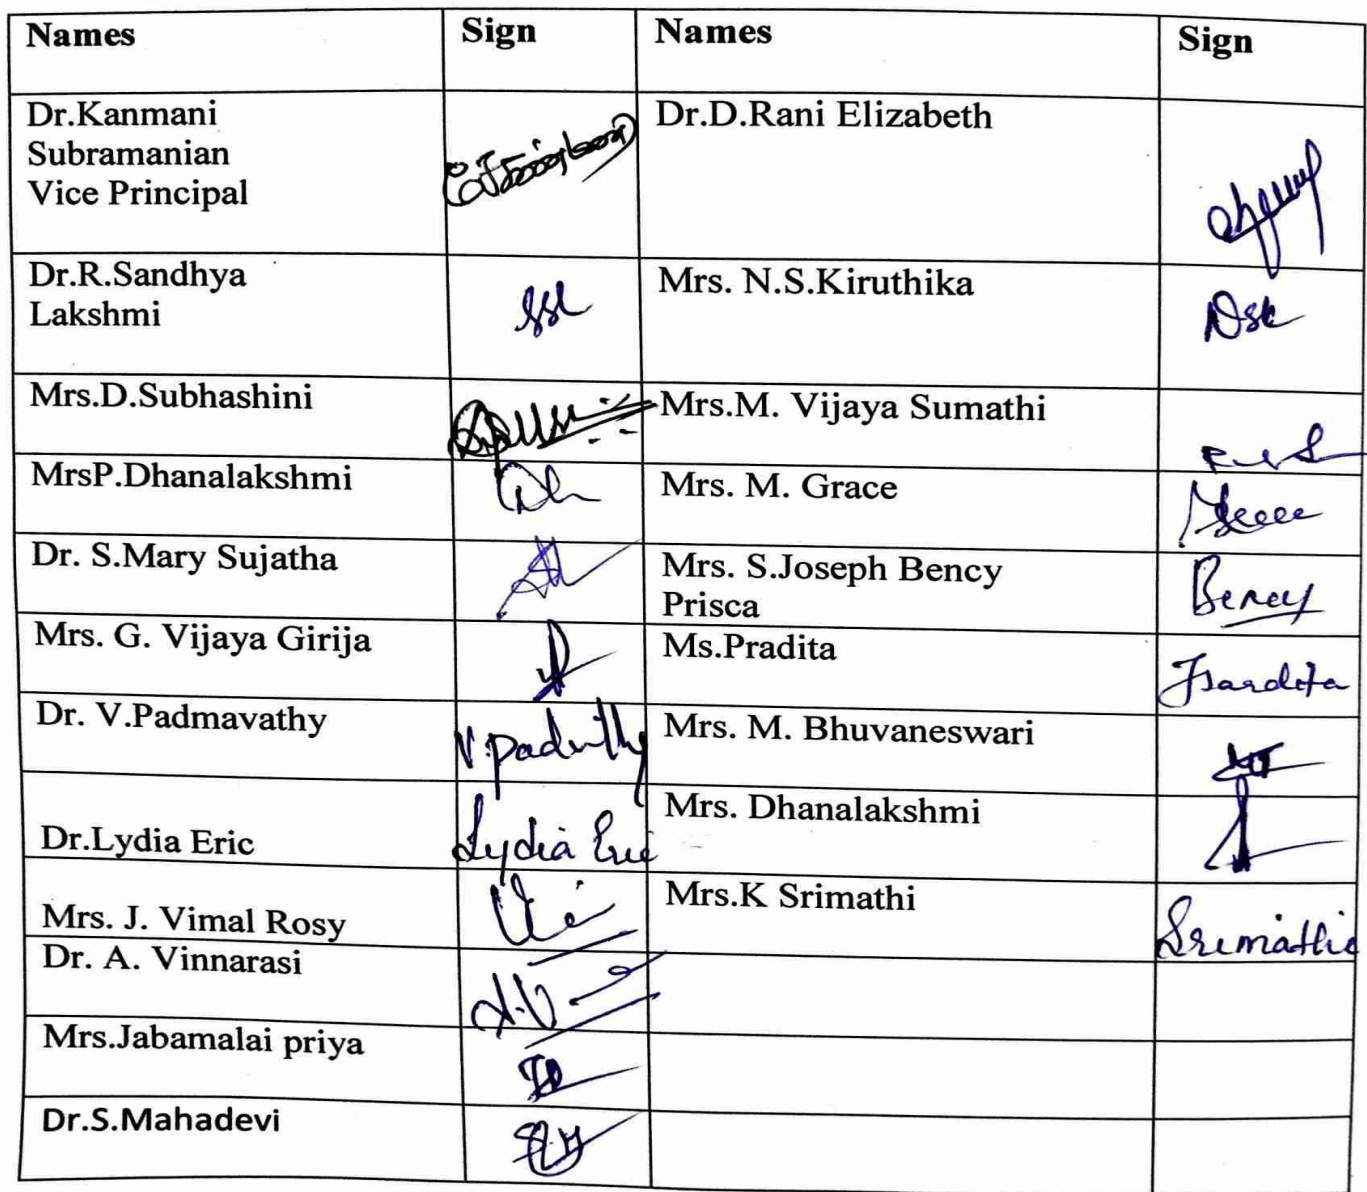 Names Sign Names Sign
Dr.Kanmani
Subramanian
Vice Principal
Dr.D.Rani Elizabeth
Dr.R.Sandhya
Lakshmi
SSL
Mrs. N.S.Kiruthika
Nsk
Mrs.D.Subhashini
Mrs.M. Vijaya Sumathi
MrsP.Dhanalakshmi
Mrs. M. Grace
Dr. S.Mary Sujatha
Mrs. S.Joseph Bency
Prisca
Bency
Mrs. G. Vijaya Girija
Ms.Pradita
Pradita
Dr. V.Padmavathy
Mrs. M. Bhuvaneswari
Dr.Lydia Eric
Lydia Eric
Mrs. Dhanalakshmi
Mrs. J. Vimal Rosy
Mrs.K Srimathi
Srimathi
Dr. A. Vinnarasi
Mrs.Jabamalai priya
Dr.S.Mahadevi